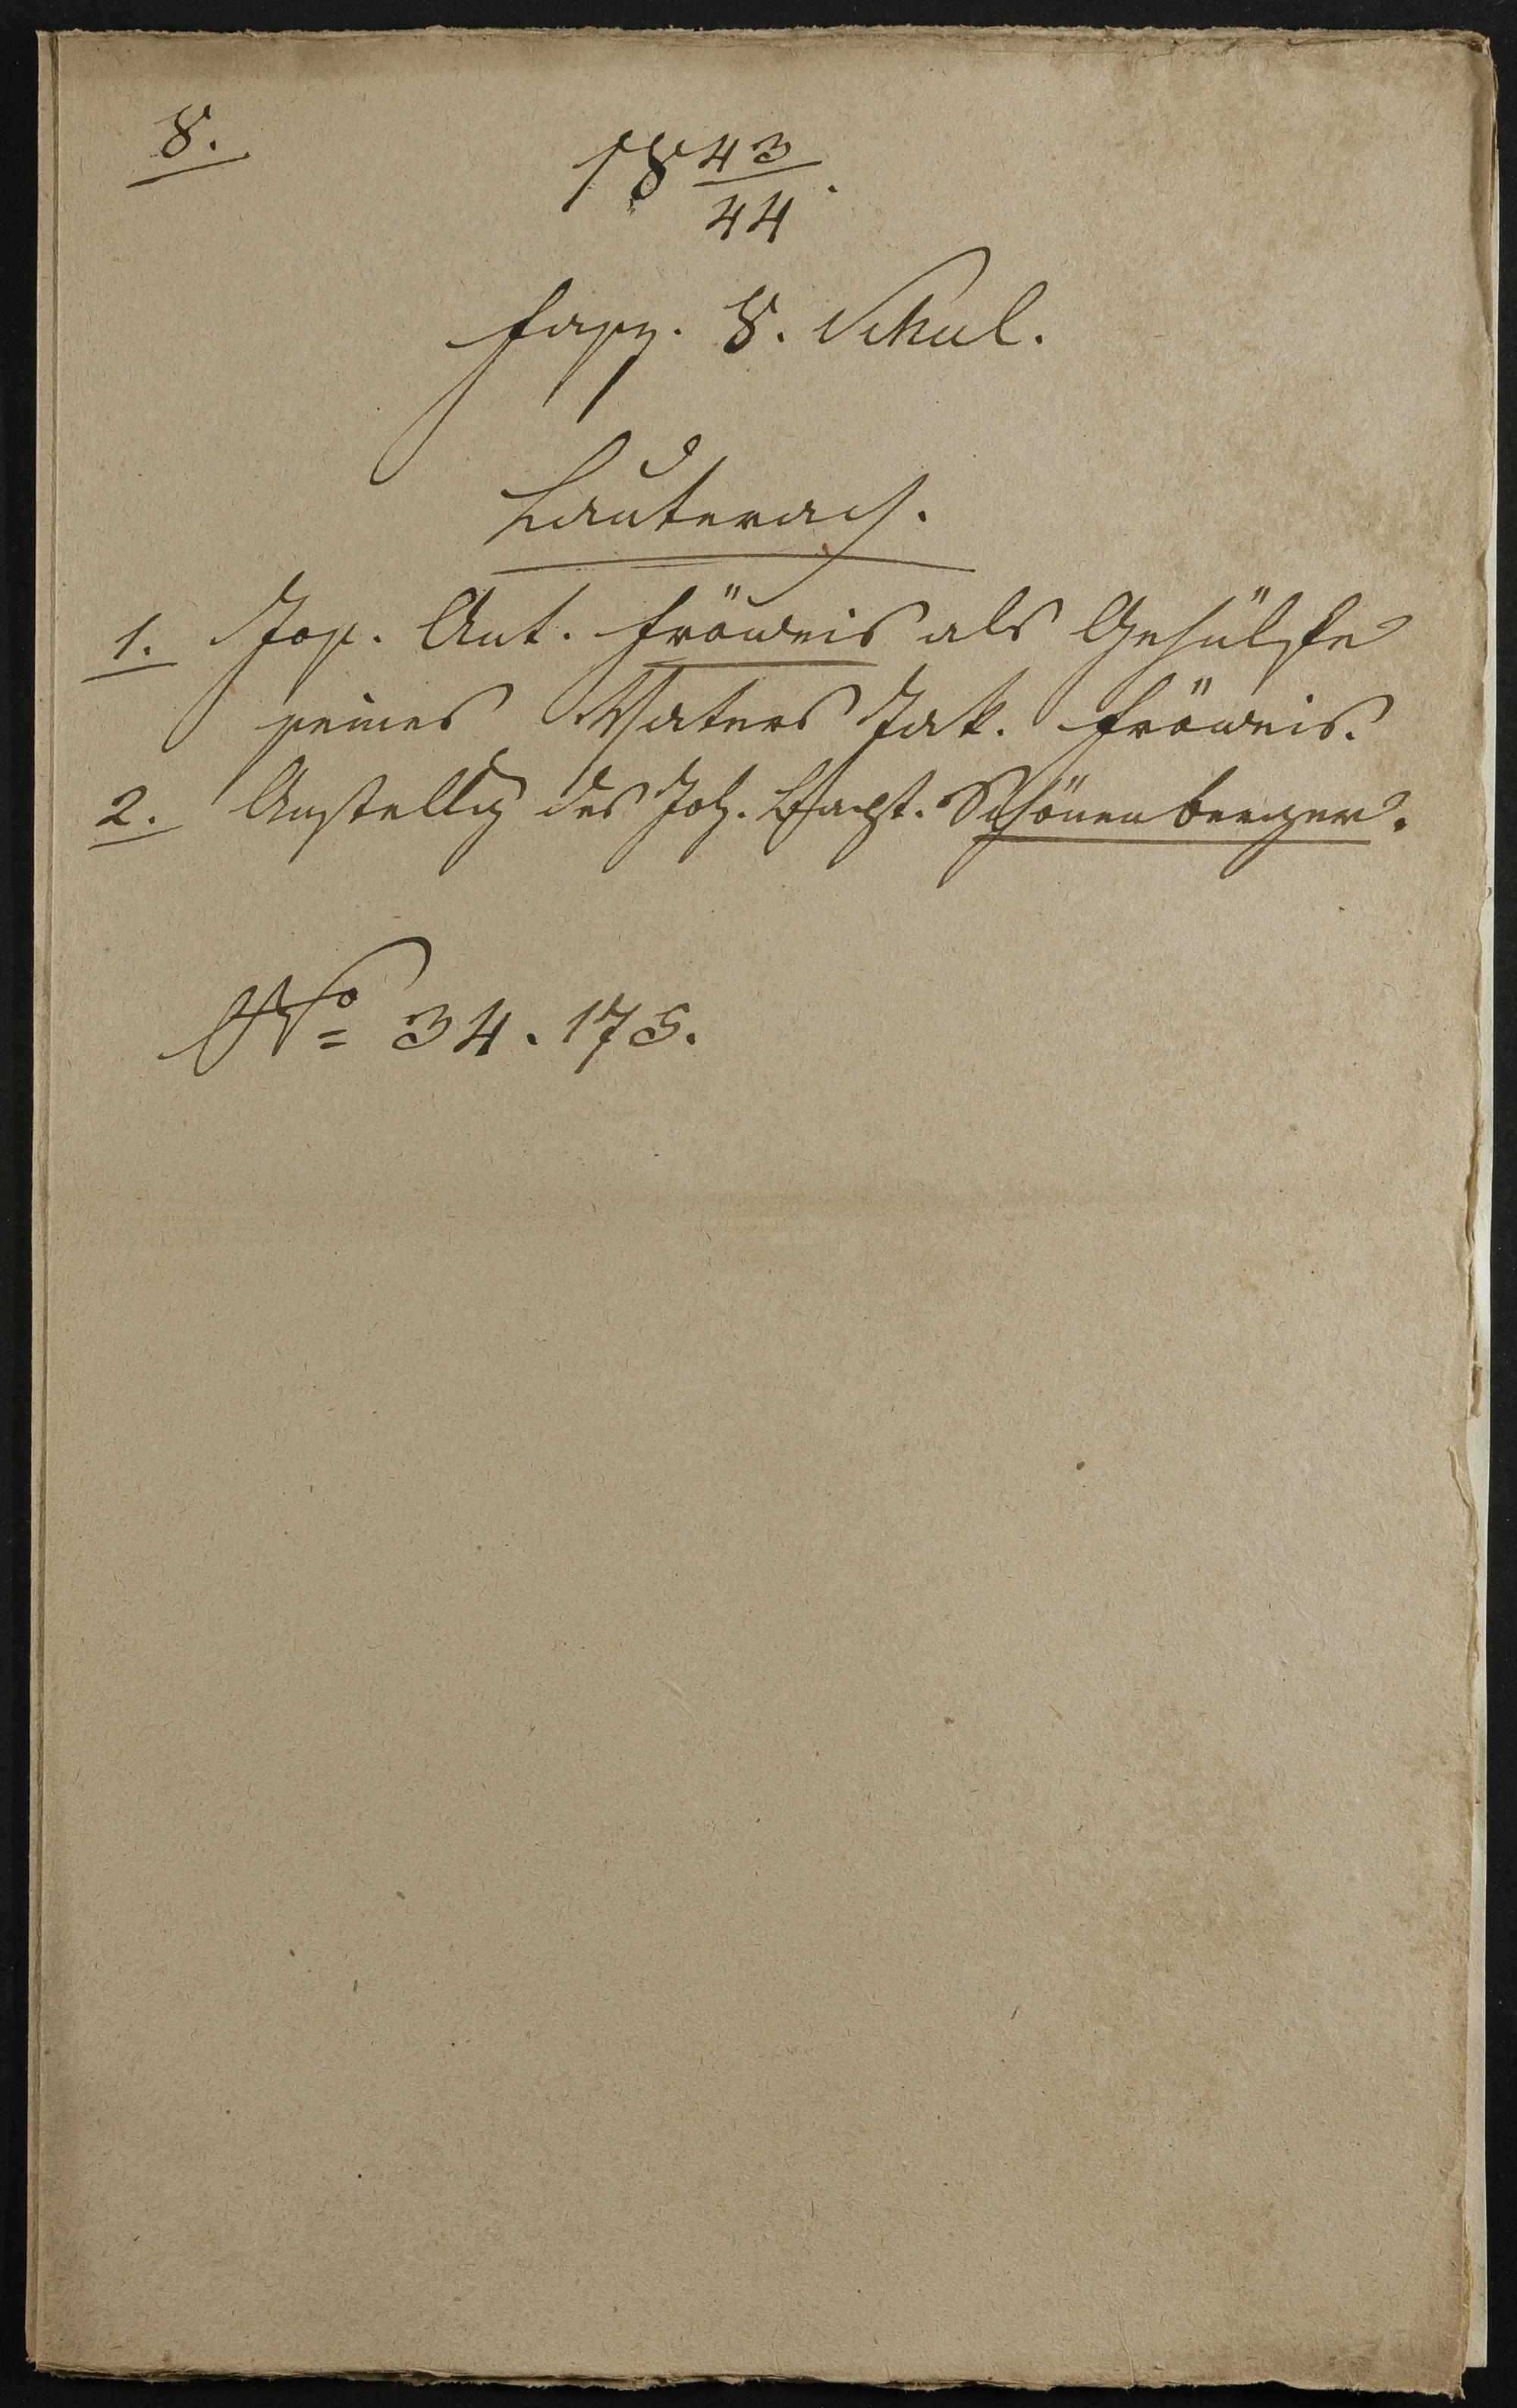 8.
18 43/44.
Fasz. 8. Schul.
Lauterach.
1. Jos. Ant. Fröweis als Gehülfe
seines Vaters Jak. Fröweis.
2. Anstellg des Joh. Schönenberger.
No 34. 175.